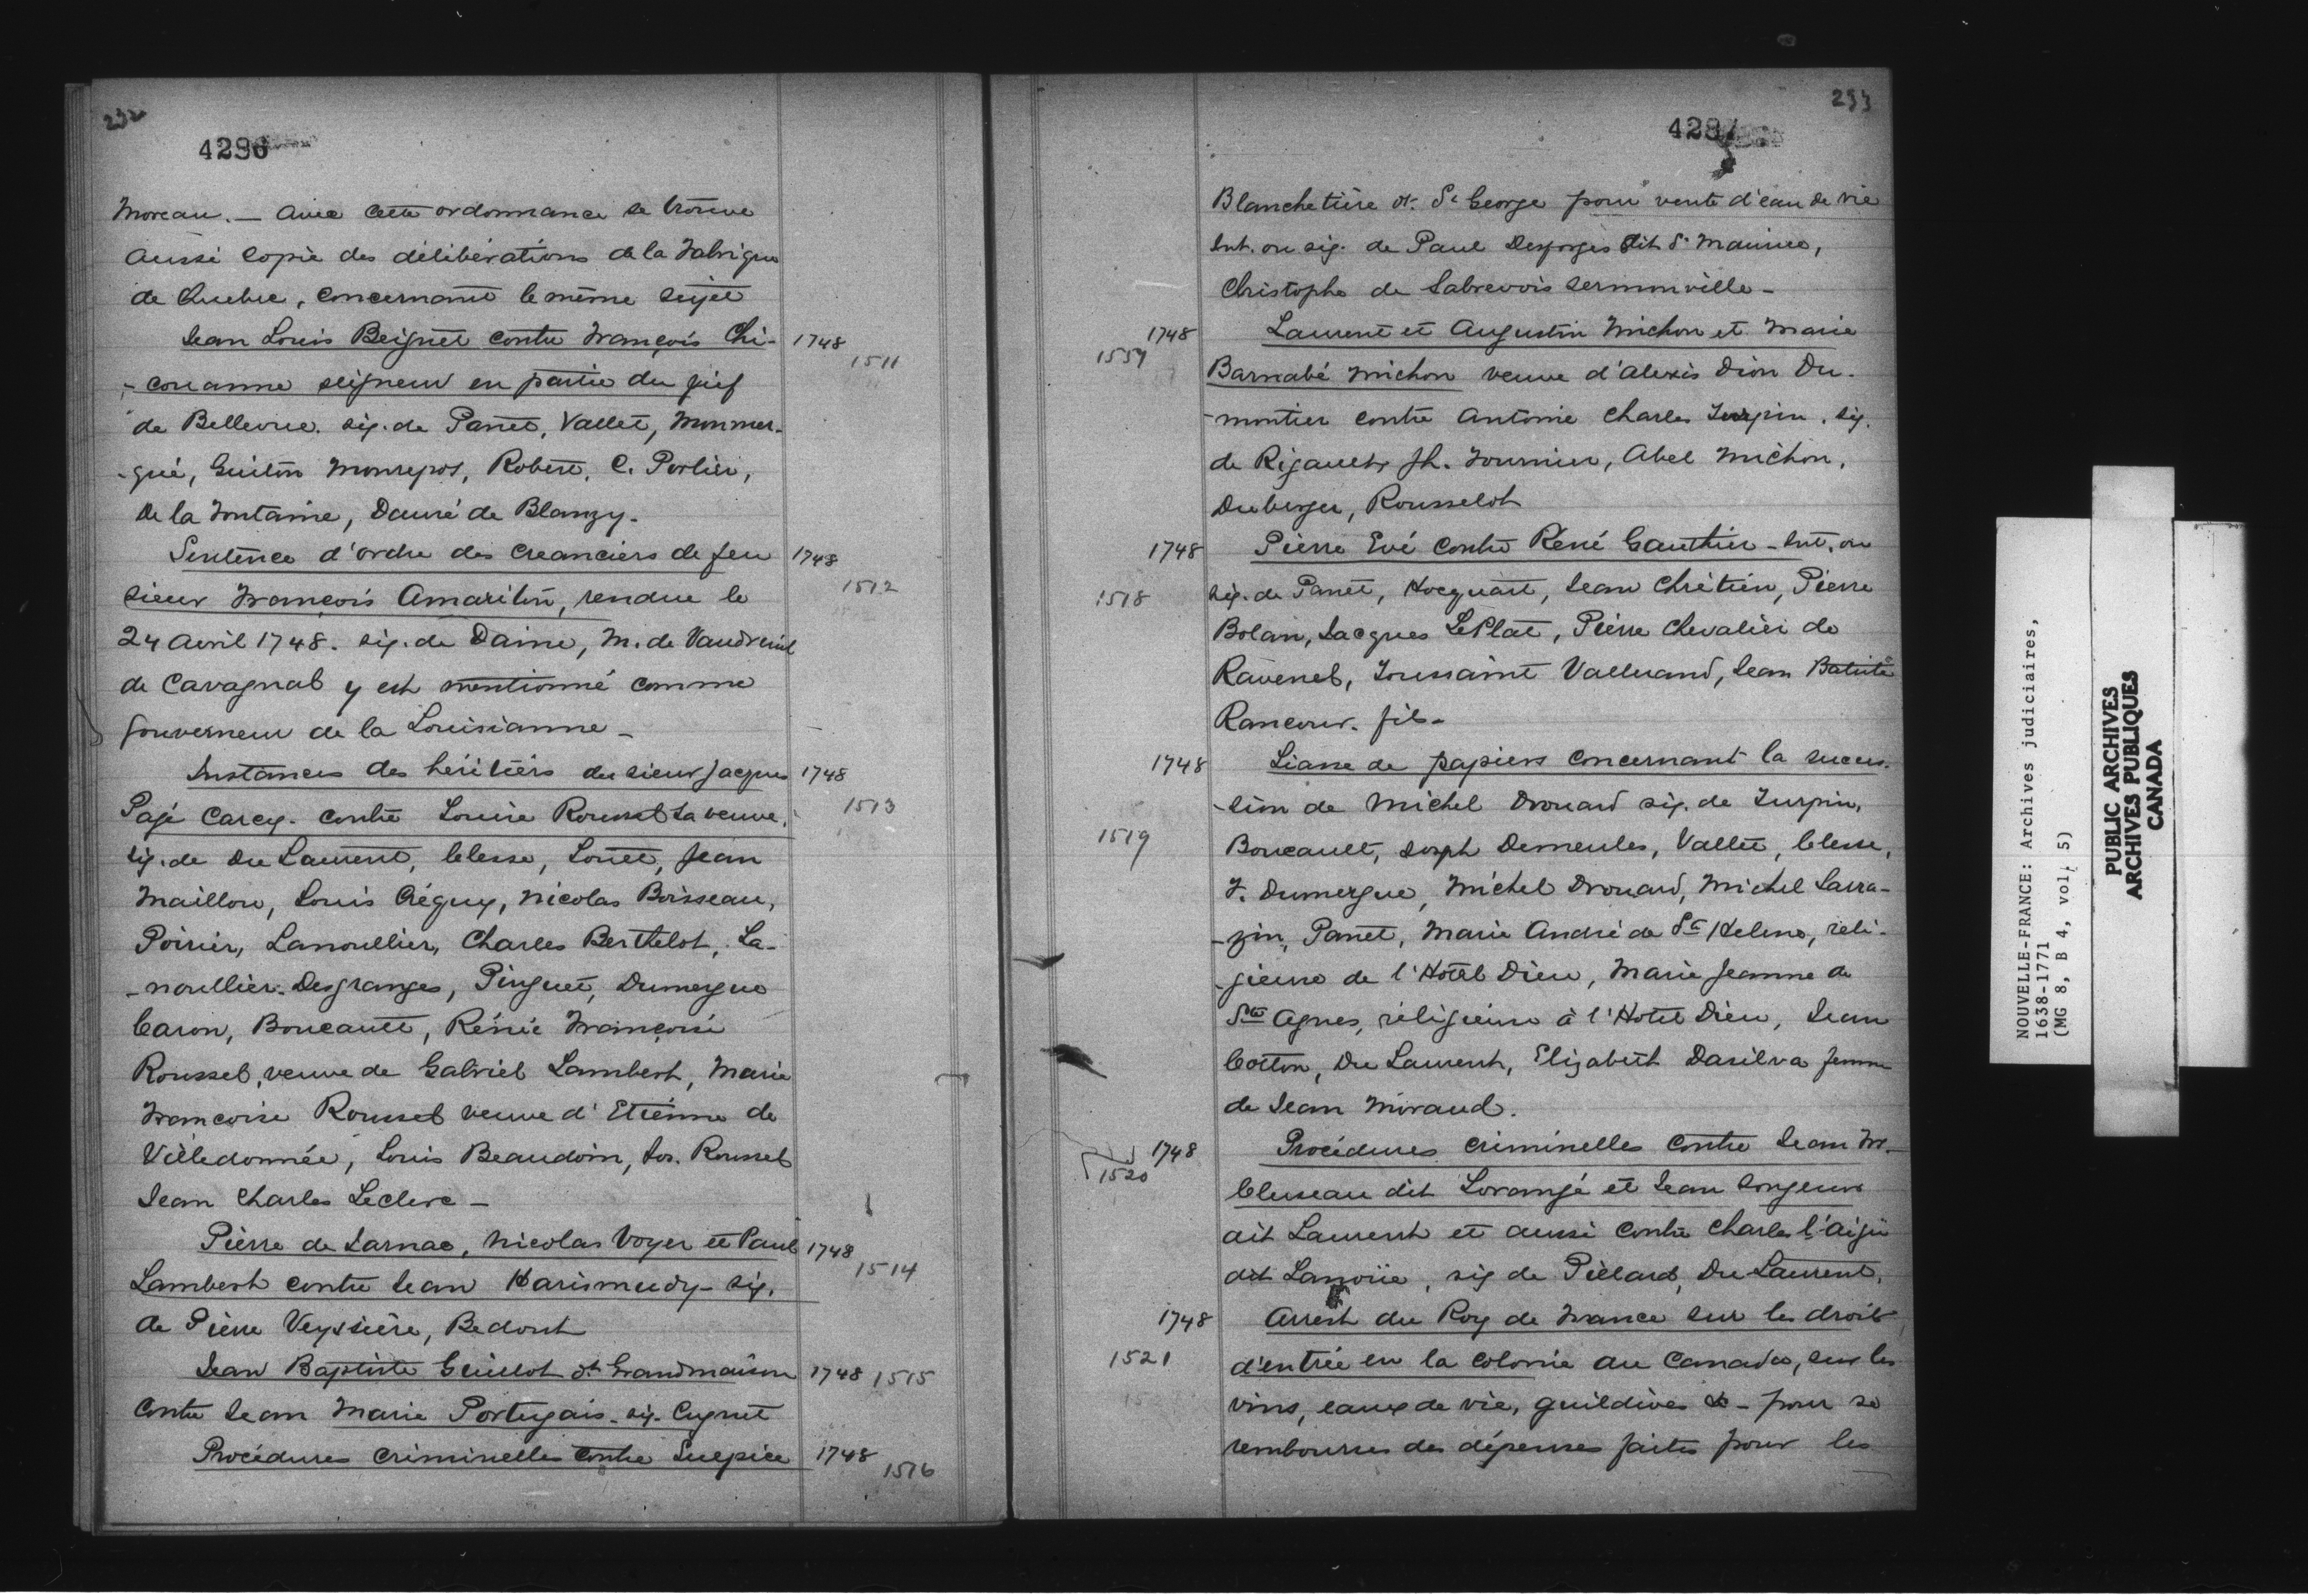 232
4286
Moreau. — Avec cette ordonnance se trouve
aussi copie des délibérations de la Fabrique
de Quebec, concernant le même sujet
Jean Louis Beignet contre François Chi- 1748
1511
-couanne seigneur en partie du fief
de Bellevue. sig. de Panet, Vallet, Monmer-
-qué, Guiton Monrepos, Robert, C. Porlier,
De la Fontaine, Dauré de Blanzy.
Sentence d'ordre des creanciers de feu 1748
1512
sieur François Amariton, rendue le
24 avril 1748. sig. de Daine, M. de Vaudreuil
de Cavagnal y est mentionné comme
Gouverneur de la Louisianne —
Instances des héritiers du sieur Jacques 1748
1513
Pagé Carcy. contre Louise Roussel sa veuve.
sig. de Du Laurent, Clesse, Louet, Jean
Maillou, Louis Créquy, Nicolas Boisseau,
Poirier, Lanoullier, Charles Berthelot, La-
-noullier-Desgranges, Pinguet, Dumergue
Caron, Boucault, Rénée Françoise
Roussel, veuve de Gabriel Lambert, Marie
Françoise Roussel veuve d'Etienne de
Villedonnée, Louis Beaudoin, Jos. Roussel
Jean Charles Leclerc —
Pierre de Jarnac, Nicolas Voyer et Paul 1748
1514
Lambert contre Jean Harismendy - sig.
de Pierre Veyssière, Bedout
Jean Baptiste Guillot dt Grandmaison 1748 1515
contre Jean Marie Portugais. sig. Cugnet
Procédures criminelles contre Sulpice 1748
1516
233
4287
Blanchetière dt. St George pour vente d'eau de vie
Int. ou sig. de Paul Desforges dit St Maurice,
Christophe de Sabrevois Sermonville —
1748 Laurent et Augustin Michon et Marie
Barnabé Michon veuve d'Alexis Dion Du-
-montier contre Antoine Charles Turpin. sig.
de Rigault, Jh. Fournier, Abel Michon,
Duberger, Rousselot
1748 Pierre Evé contre Réné Gauthier - Int. ou
1518 sig. de Panet, Hocquart, Jean Chrétien, Pierre
Bolan, Jacques LePlat, Pierre Chevalier de
Ravenel, Toussaint Valluand, Jean Batiste
Rancour. fils —
1748 Liasse de papiers concernant la succes-
-sion de Michel Drouard sig. de Turpin,
1519 Boucault, Joseph Demeules, Vallet, Clesse,
F. Dumergue, Michel Drouard, Michel Sarra-
-zin, Panet, Marie André de Ste Helene, reli-
-gieuse de l'Hotel Dieu, Marie Jeanne de
Ste Agnes, réligieuse à l'Hotel Dieu, Jean
Cotton, Du Laurent, Elizabeth Dasilva femme
de Jean Moraud.
1748 Procédures criminelles contre Jean Fr.
1520
Cluseau dit Lorangé et Jean Songeur
dit Laurent et aussi contre Charles l'aigu
dit Lanoüe, sig de Piélard, Du Laurent.
1748 Arrest du Roy de France sur les droits
1521 d'entrée en la colonie du Canada, sur les
vins, eaux de vie, guildives &- pour se
rembourser des dépenses faites pour les
NOUVELLE-FRANCE: Archives judiciaires,
1638-1771
(MG 8, B 4, vol. 5)
PUBLIC ARCHIVES
ARCHIVES PUBLIQUES
CANADA